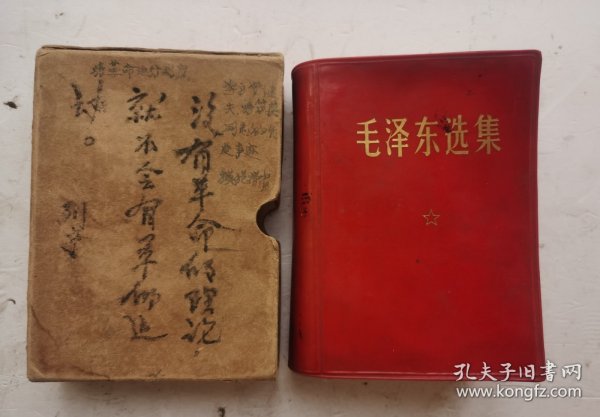 将革命进行到底
没有革命的理论，
就不会有革命运
动。
列宁
毛泽东选集
孔夫子旧书网
www.kongfz.com